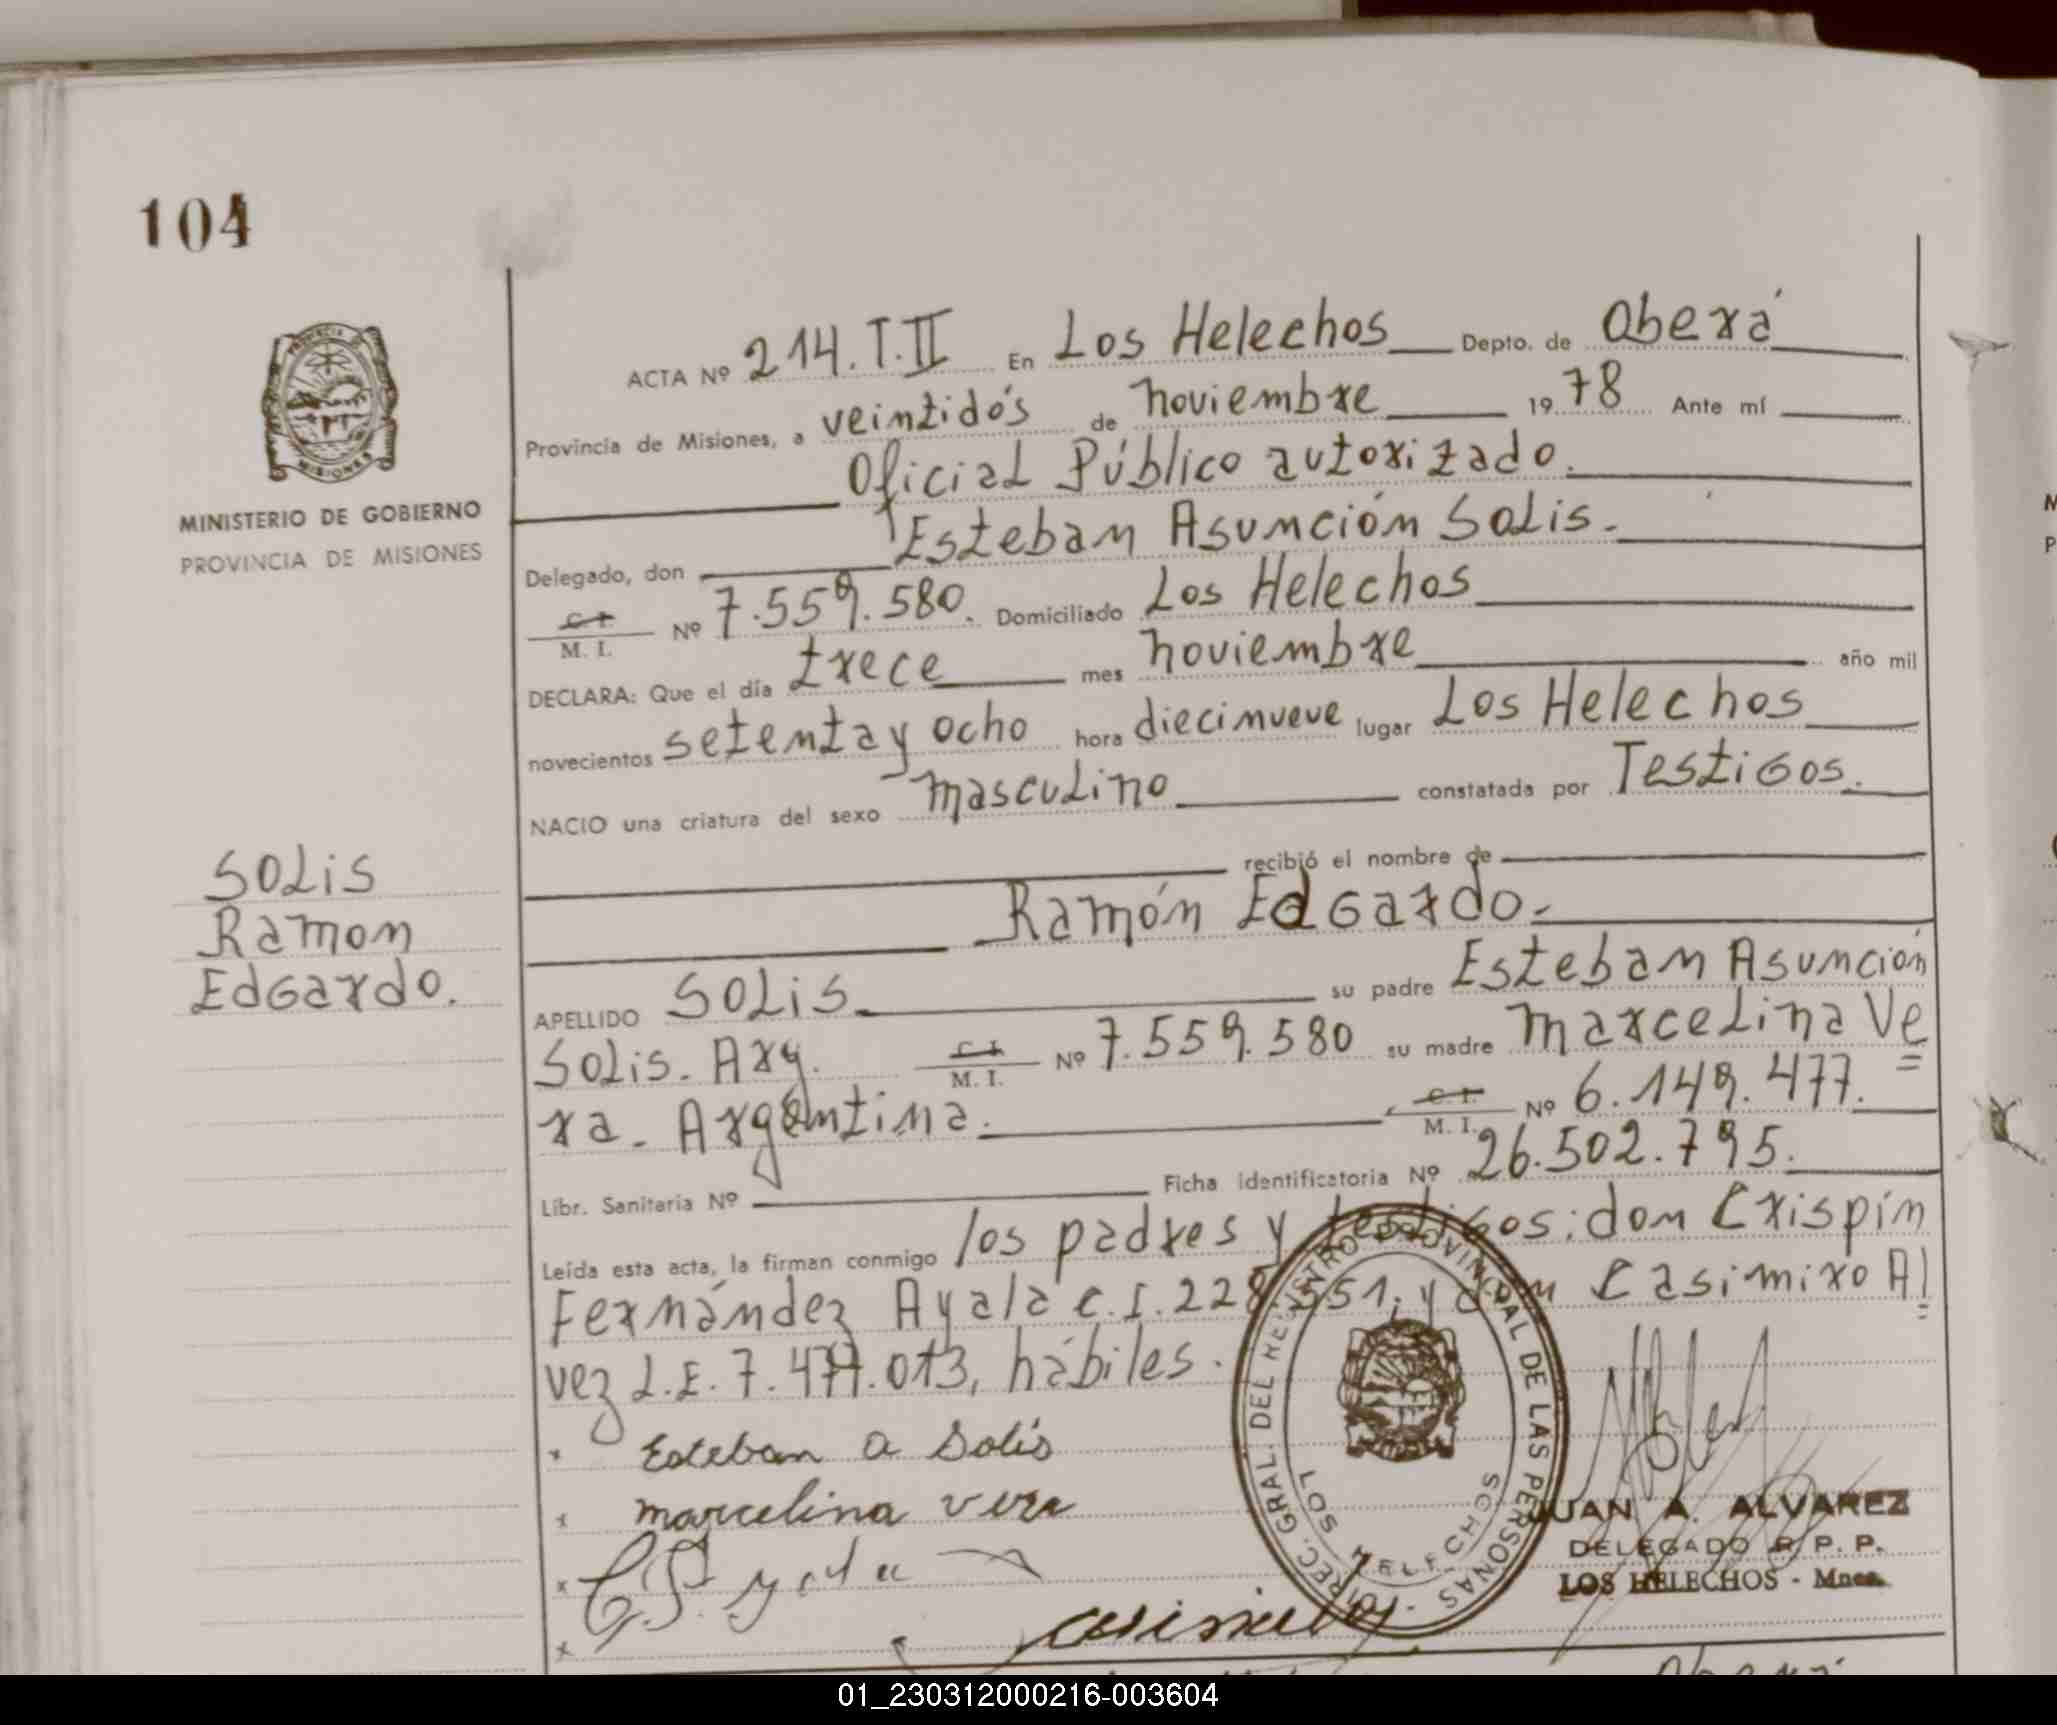 104
PROVINCIA DE MISIONES
MINISTERIO DE GOBIERNO
PROVINCIA DE MISIONES
ACTA Nº 214. T. II En Los Helechos Depto. de Oberá
Provincia de Misiones, a veintidós de noviembre 19 78 Ante mí
Oficial Público autorizado.
Delegado, don Esteban Asunción Solis.
C. I. / M. I. Nº 7.559.580. Domiciliado Los Helechos
DECLARA: Que el día trece mes noviembre año mil
novecientos setenta y ocho hora diecinueve lugar Los Helechos
NACIO una criatura del sexo masculino constatada por Testigos.
recibió el nombre de
Ramón Edgardo.
SOLIS
Ramon
Edgardo.
APELLIDO SOLIS su padre Esteban Asunción
Solis. Arg. C. I. / M. I. Nº 7.559.580 su madre Marcelina Ve=
ra. Argentina. C. I. / M. I. Nº 6.149.477.
Libr. Sanitaria Nº Ficha identificatoria Nº 26.502.795.
Leída esta acta, la firman conmigo los padres y testigos: don Crispín
Fernández Ayala C.I. 228.551, y don Casimiro Al=
vez L.E. 7.477.013, hábiles.
x Esteban a Solis
x marcelina vera
x
x
DIREC. GRAL. DEL REGISTRO PROVINCIAL DE LAS PERSONAS
LOS HELECHOS
JUAN A. ALVAREZ
DELEGADO R. P. P.
LOS HELECHOS - Mnes.
01_230312000216-003604